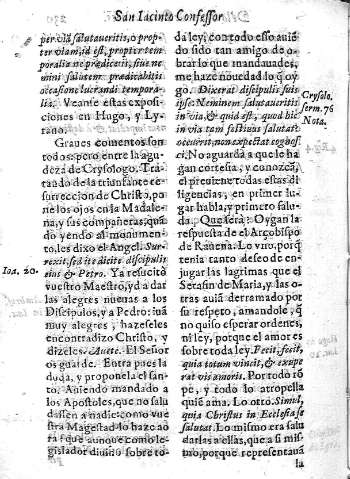 San Iacinto Confessor
per viã salutaueritis, o propter
viam, id est, propter temporalia
ne prædicetis, siue nemini
salutem prædicabitis
occasione lucrandi temporalia.
Veanse estas exposiciones
en Hugo, y Lyrano.
Graues comentos son
todos: pero entre la agudeza
de Crysologo. Tratando
de la triunfante resurreccion
de Christo, pone
los ojos en la Madalena,
y sus compañeras, quãdo
yendo al monumento,
les dixo el Angel. Surrexit,
sed ite dicite discipulis
eius & Petro. Ya resucitò
Ioa. 20.
vuestro Maestro, yd a dar
las alegres nueuas a los
Discipulos, y a Pedro: iuã
muy alegres, hazeseles
encontradizo Christo, y
dizeles. Auete. El Señor
os guarde. Entra pues la
duda, y propone la el santo.
Auiendo mandado a
los Apostoles, que no saludassen
a nadie: como vuestra
Magestad lo haze aora?
que aunque como legislador
diuino sobre toda
ley, con todo esso auiẽdo
sido tan amigo de obrar
lo que mandauades,
me haze nouedad lo q̃ oygo.
Dixerat discipulis suis
ipse: Neminem salutaueritis
in via, & quid est, quod hic
in via tam festinus salutat
occurrit, non expectat cognosci.
Crysolo.
serm. 76
Nota.
No aguarda a que le hagan
cortesia, y conozcã,
el preuiene todas estas diligencias,
en primer lugar
habla, y primero saluda.
Que serà? Oygan la
respuesta de el Arçobispo
de Rauena. Lo vno, porque
tenia tanto deseo de enjugar
las lagrimas que el
Serafin de Maria, y las otras
auiã derramado por
su respeto, amandole, q̃
no quiso esperar ordenes,
ni ley, porque el amor es
sobre toda ley. Fecit, fecit,
quia totum vincit, & exuperat
vis amoris. Por todo rõpe,
y todo lo atropella
quiẽ ama. Lo otro. Simul,
quia Christus in Ecclesia se
salutat. Lo mismo era saludarlas
a ellas, que a si mismo,
porque representauã
la